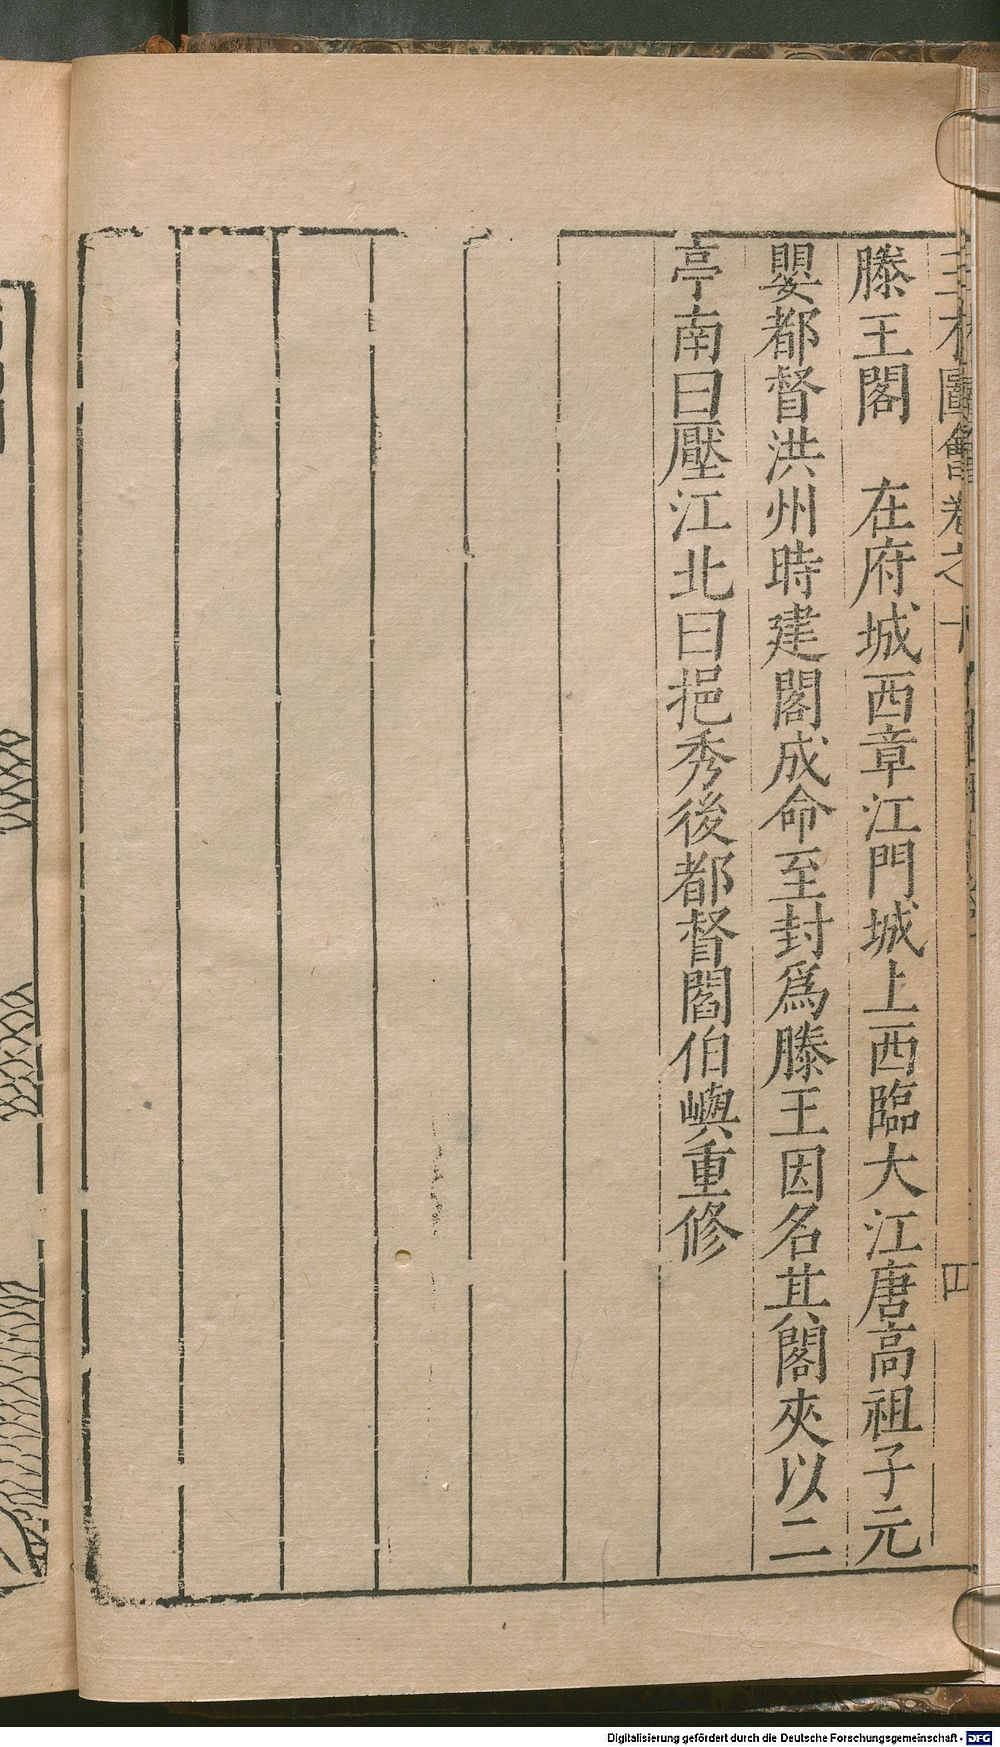 三才圖會卷之十
四
滕王閣　在府城西章江門城上西臨大江唐高祖子元
嬰都督洪州時建閣成命至封爲滕王因名其閣夾以二
亭南曰壓江北曰挹秀後都督閻伯嶼重修
Digitalisierung gefördert durch die Deutsche Forschungsgemeinschaft - DFG